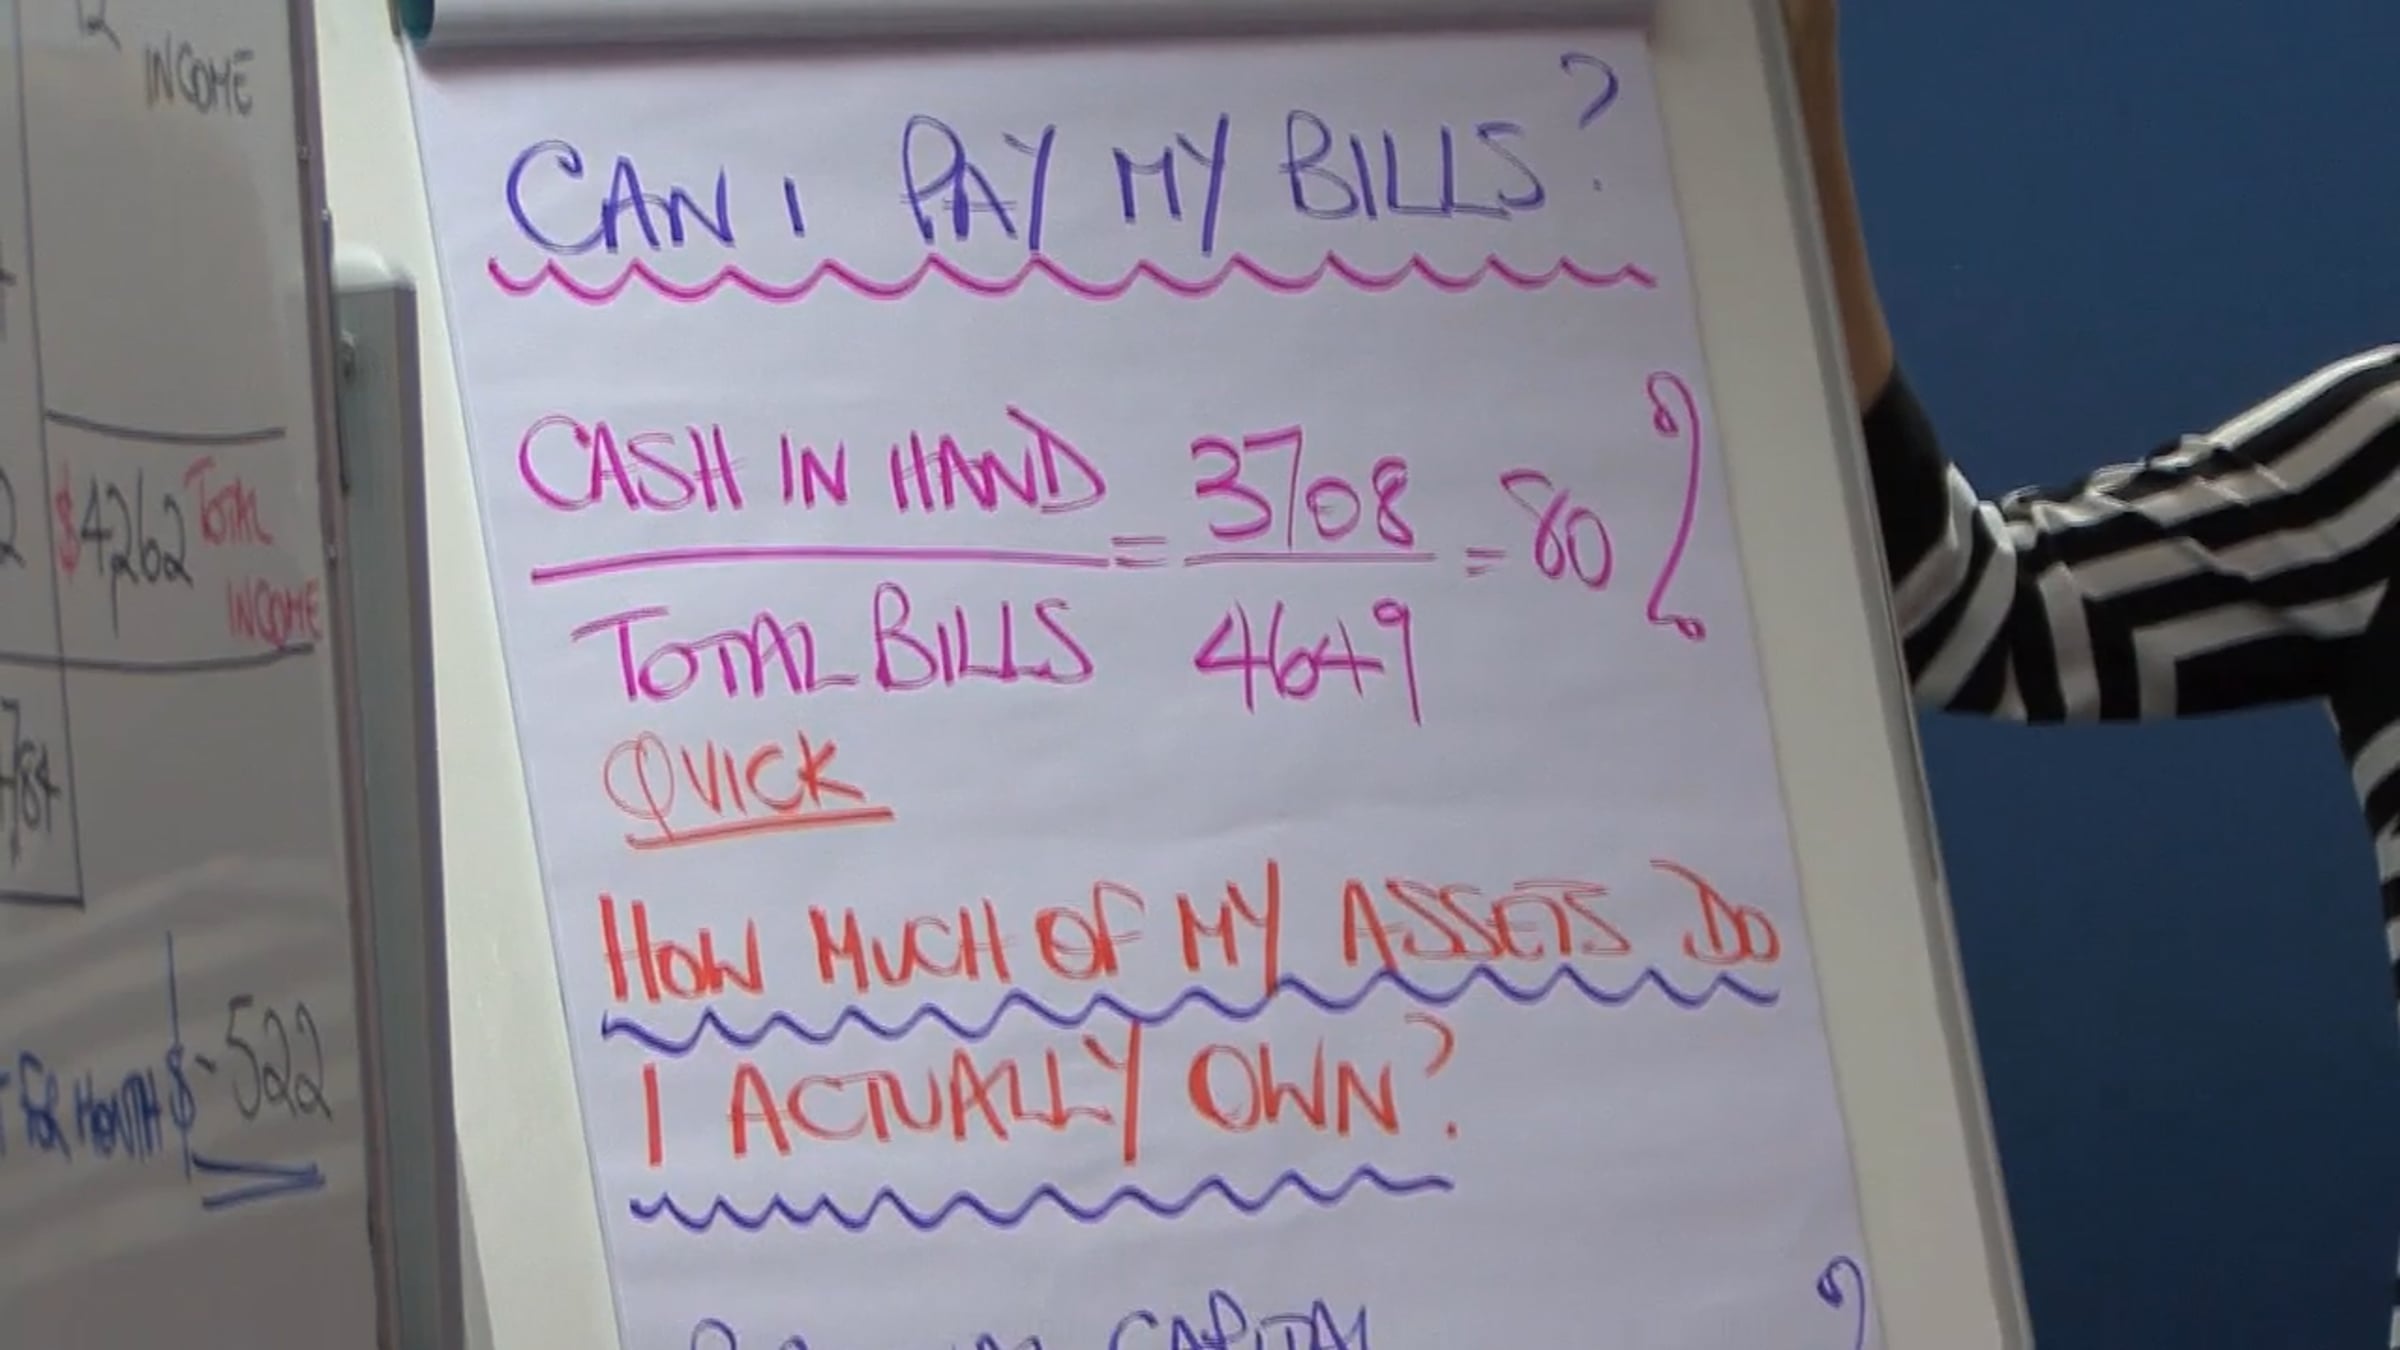 INCOME
$4262 TOTAL
INCOME
784
FOR MONTH $ -522
CAN I PAY MY BILLS?
CASH IN HAND = 3708 = 80%
TOTAL BILLS 4649
QUICK
HOW MUCH OF MY ASSETS DO
I ACTUALLY OWN?
CAPITAL